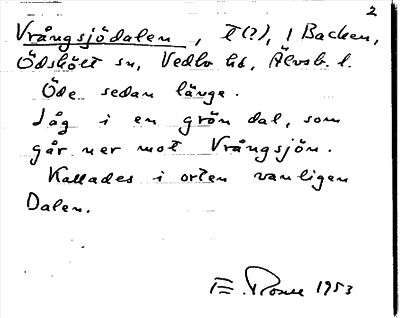 2
Vrångsjödalen, t(?), 1 Backen,
Ödskölt sn, Vedbo hd, Älvsb. l.
Öde sedan länge.
Låg i en grön dal, som
går ner mot Vrångsjön.
Kallades i orten vanligen
Dalen.
1953